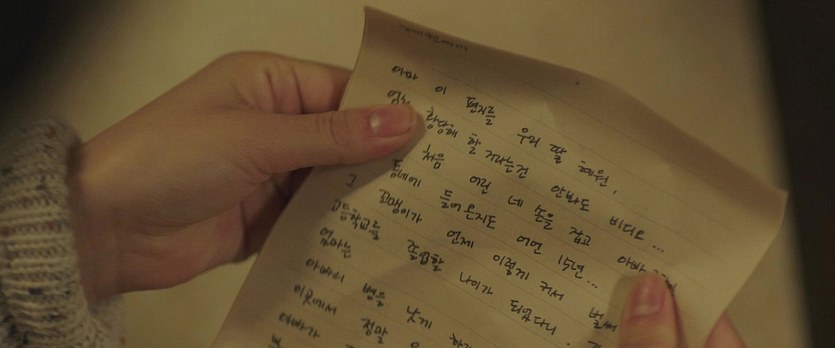 아마 이 편지를 우리 딸 혜원,
황당해 할 거라는건 안봐도 비디오...
처음 어린 네 손을 잡고 아빠
동네에 들어온지도 어언 15년...
그 꼬맹이가 언제 이렇게 커서 벌써
고등학교를 졸업할 나이가 되었다니.
엄마는
아빠의 병을 낫게
이곳에서 정말
아빠가